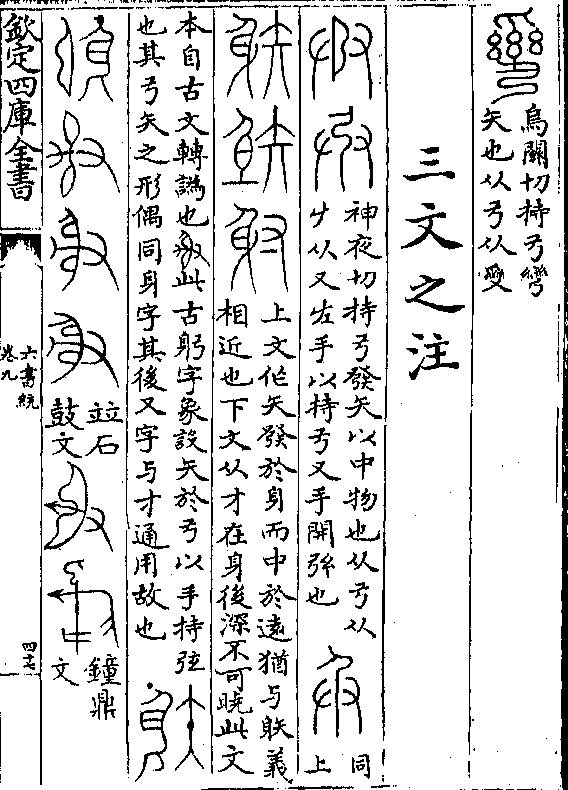 烏關切持弓彎
矢也从弓从
三文之注
神夜切持弓發矢以中物也从弓从
从又左手以持弓又手開弦也
同
上
上文作矢發於身而中於遠猶与䠶義
相近也下文从才在身後深不可曉此文
本自古文轉譌也此古躬字象設矢於弓以手持弦
也其弓矢之形偶同身字其後又字与才通用故也
竝石
鼓文
鐘鼎
文
欽定四庫全書
六書統
卷九